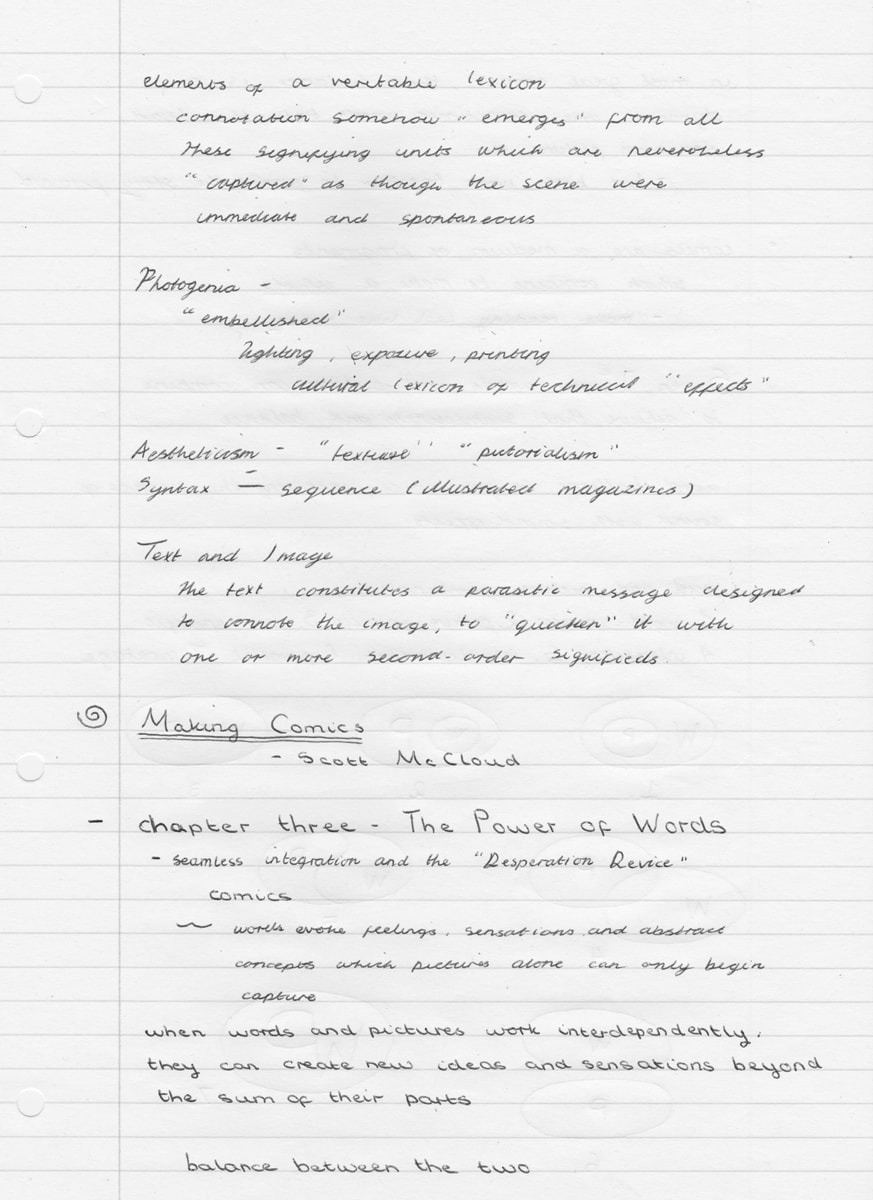 elements of a veritable lexicon
connotation somehow "emerges" from all
these signifying units which are nevertheless
"captured" as though the scene were
immediate and spontaneous
Photogenia -
"embellished"
lighting, exposure, printing
cultural lexicon of technical "effects"
Aestheticism - "texture" "pictorialism"
Syntax - sequence (illustrated magazines)
Text and Image
the text constitutes a parasitic message designed
to connote the image, to "quicken" it with
one or more second-order signifieds.
Making Comics
- Scott McCloud
- chapter three - The Power of Words
- seamless integration and the "Desperation Device"
comics
~ words evoke feelings, sensations and abstract
concepts which pictures alone can only begin
capture
when words and pictures work interdependently,
they can create new ideas and sensations beyond
the sum of their parts
balance between the two